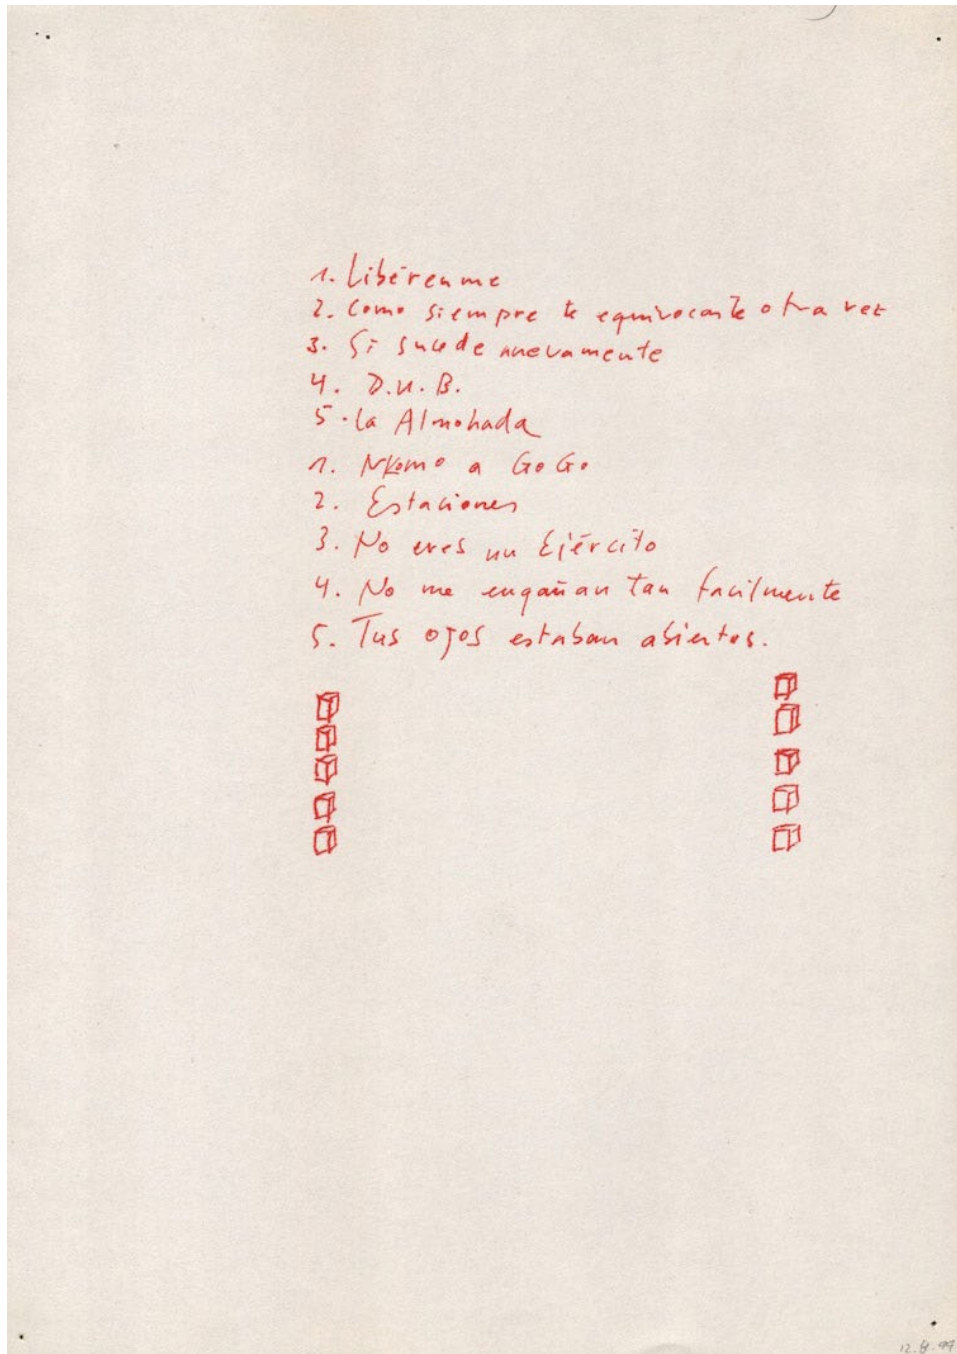 1. Libérenme
2. Como siempre te equivocaste otra vez
3. Si sucede nuevamente
4. D.N.B.
5. La Almohada
1. Nkomo a GoGo
2. Estaciones
3. No eres un Ejército
4. No me engañan tan facilmente
5. Tus ojos estaban abiertos.